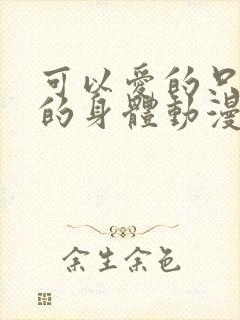 可以愛的只
的身體動漫
余生余色